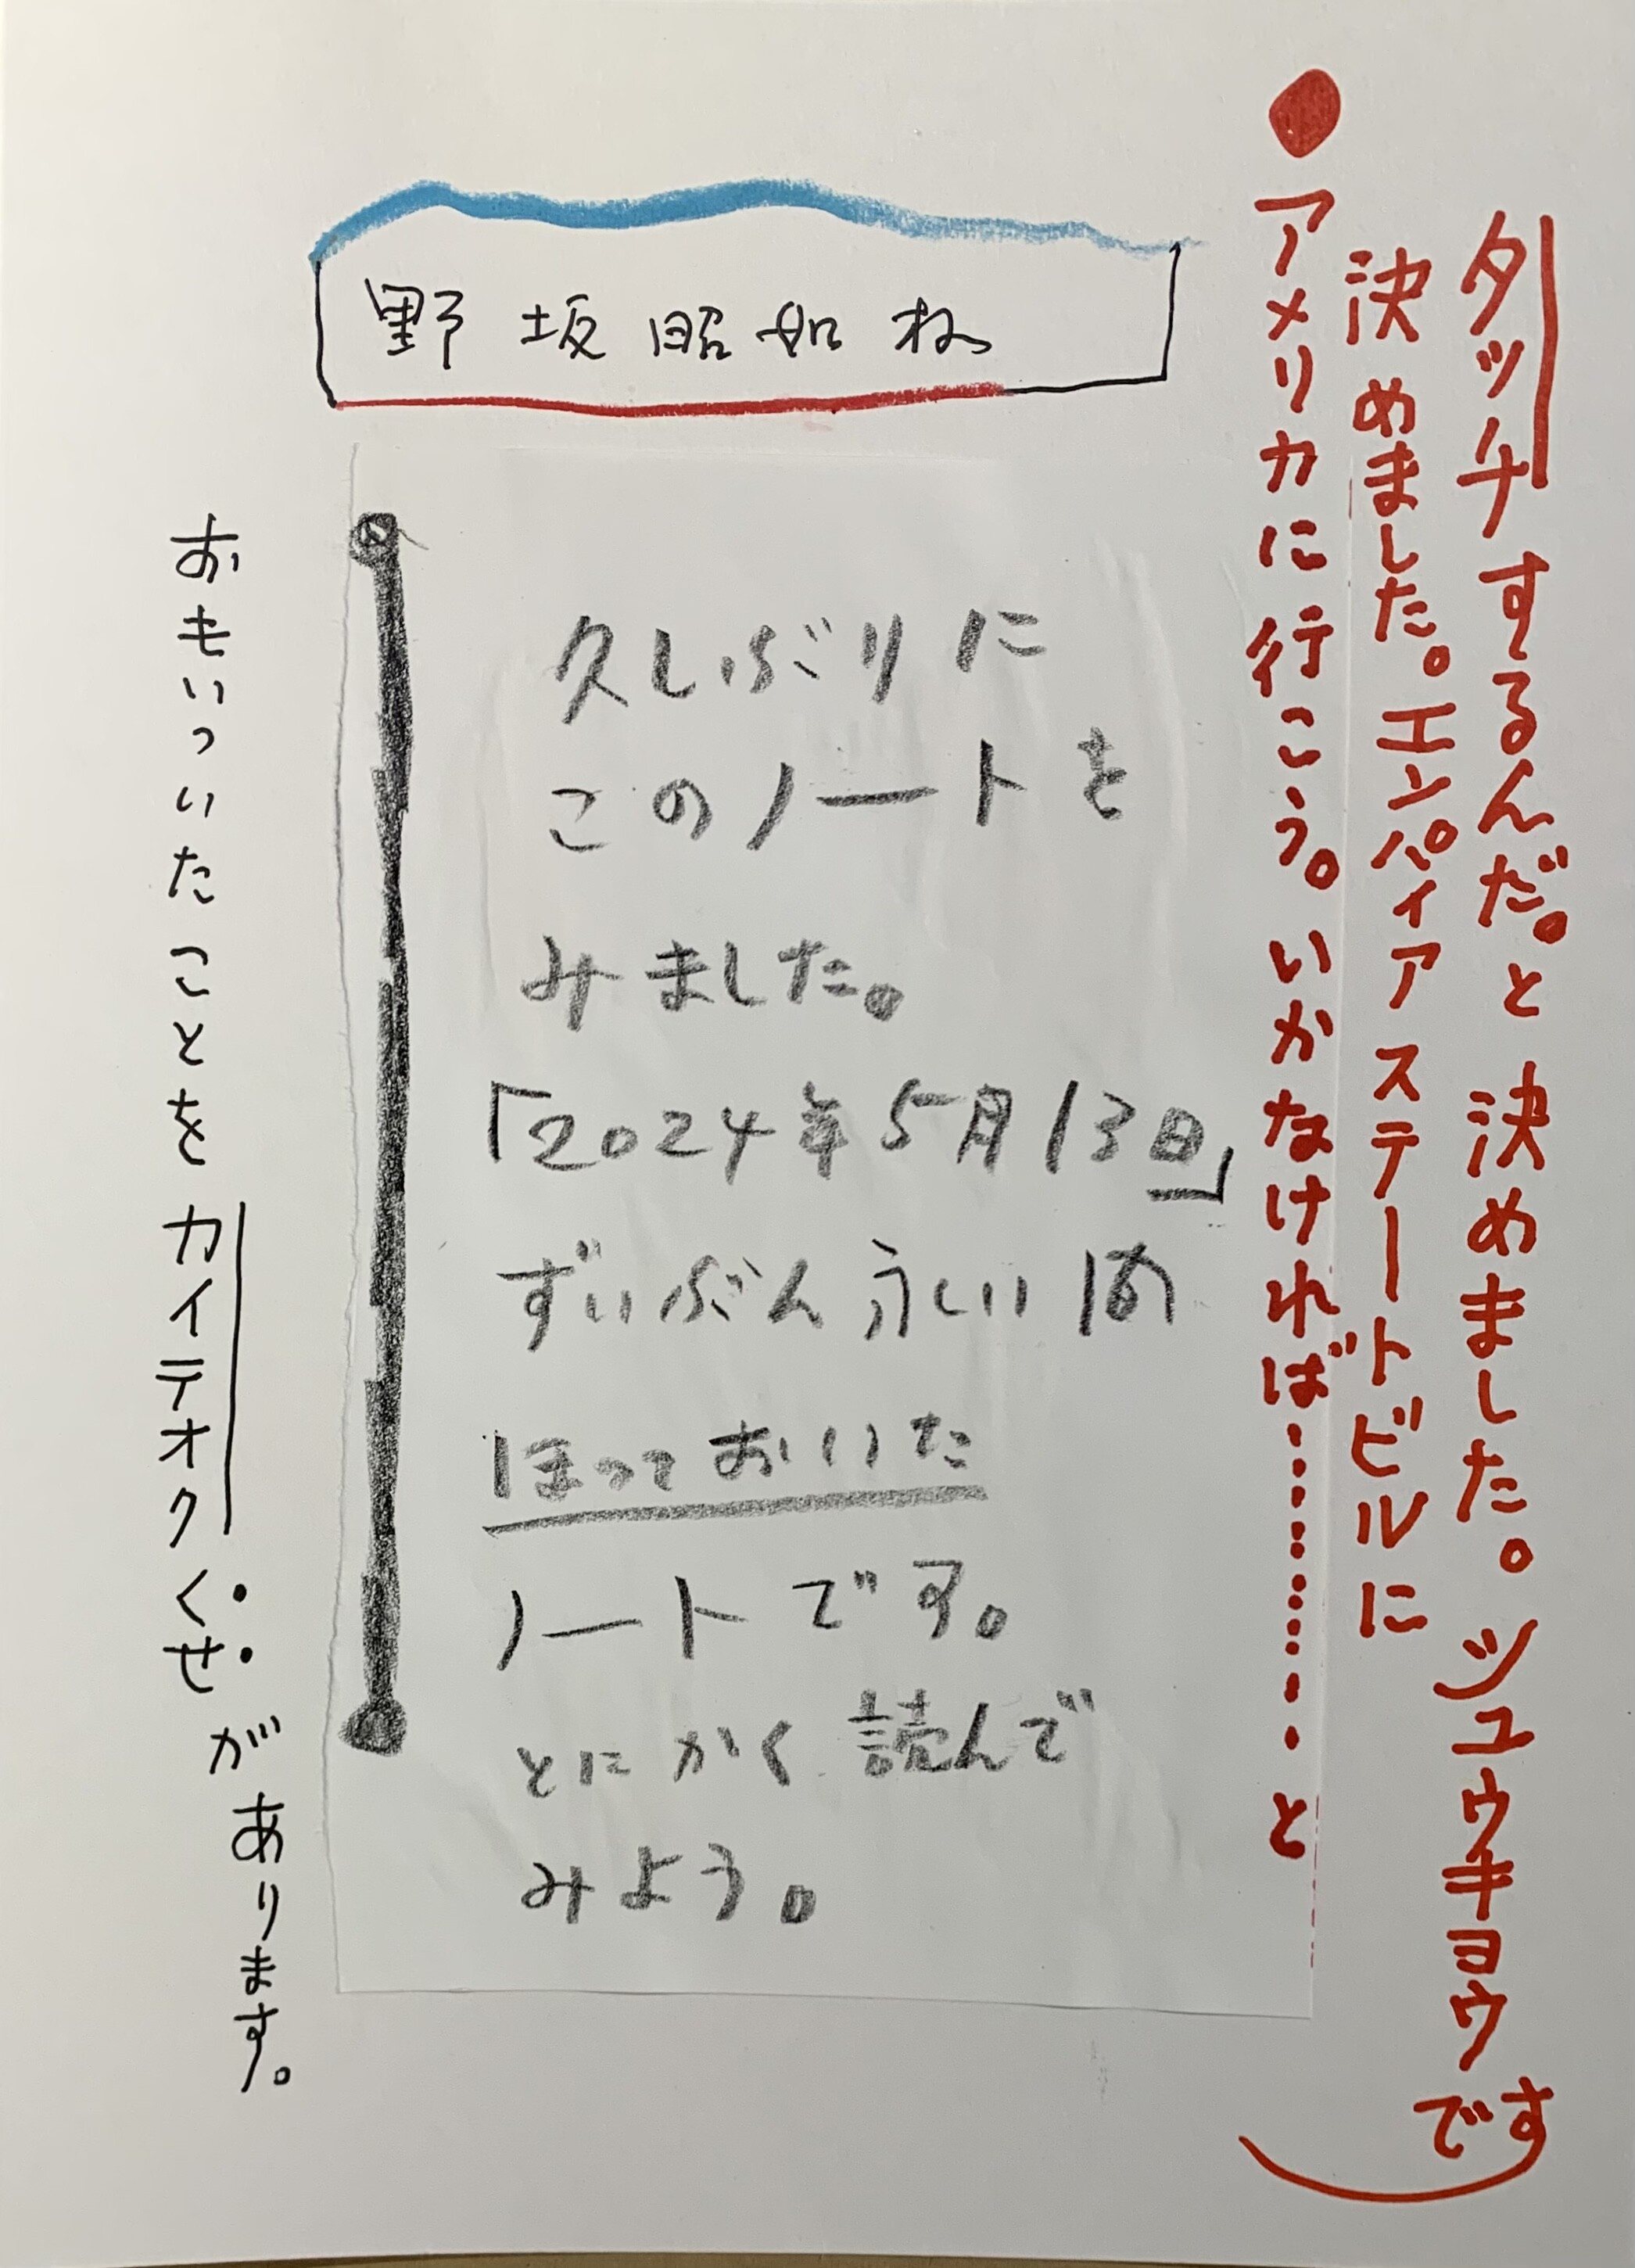 野坂昭如様
久しぶりに
このノートを
みました。
「2024年5月13日」
ずいぶん永い間
ほっておいいた
ノートです。
とにかく読んで
みよう。
●アメリカに行こう。いかなければ…………と
決めました。エンパイアステートビルに
タッチするんだ。と決めました。シュウキョウです
おもいついたことをカイテオクくせがあります。